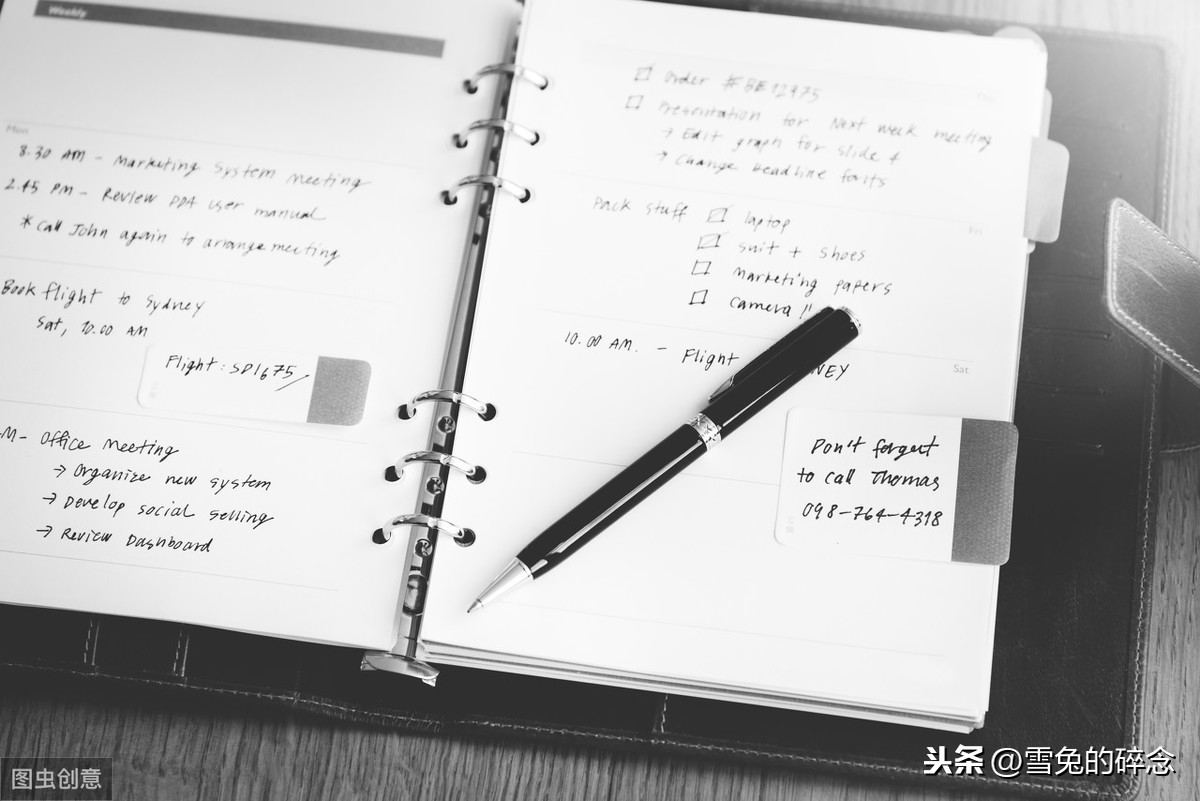 Weekly
Mon
8.30 AM - Marketing System Meeting
2.45 PM - Review PDA user manual
* Call John again to arrange meeting
Book flight to Sydney
Sat, 10.00 AM
Flight: SD1675
M - Office Meeting
→ Organize new system
→ Develop social selling
→ Review Dashboard
Order #BE12975
Presentation for Next week meeting
→ Edit graph for slide 4
→ Change headline fonts
Pack stuff
laptop
suit + shoes
Marketing papers
camera !!
Fri
10.00 AM. - Flight NEY
Sat
Don't forget
to call Thomas
098-764-4318
图虫创意
头条 @雪兔的碎念